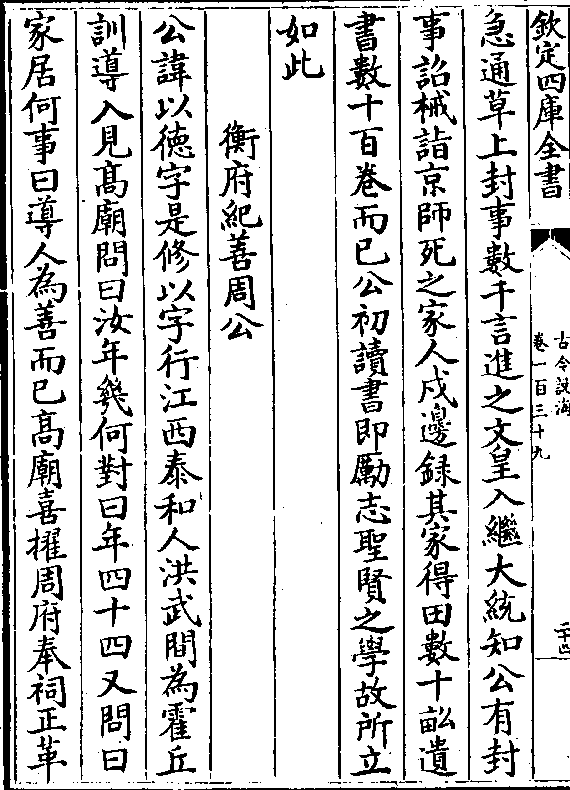 欽定四庫全書
古今說海
卷一百三十九
二十四
急通草上封事數千言進之文皇入繼大統知公有封
事詔械詣京師死之家人戍邊録其家得田數十畝遺
書數十百卷而已公初讀書即勵志聖賢之學故所立
如此
衡府紀善周公
公諱以德字是修以字行江西泰和人洪武間為霍丘
訓導入見髙廟問曰汝年幾何對曰年四十四又問曰
家居何事曰導人為善而已髙廟喜擢周府奉祠正革